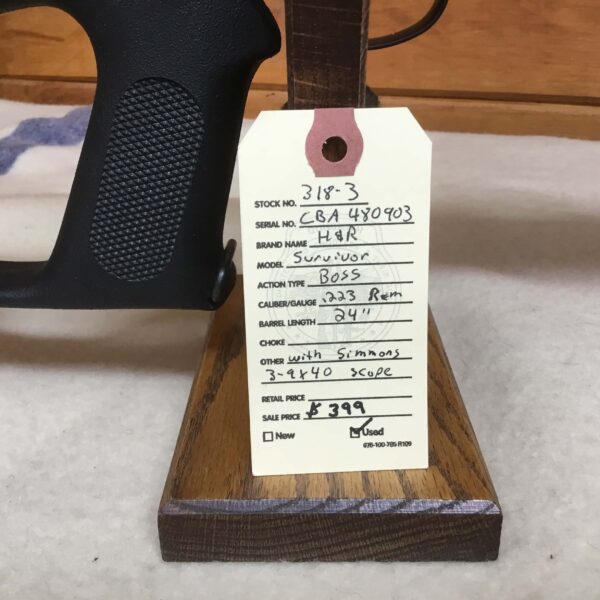 STOCK NO. 318-3
SERIAL NO. CBA 480903
BRAND NAME H&R
MODEL Survivor
ACTION TYPE BOSS
CALIBER/GAUGE .223 Rem
BARREL LENGTH 24"
CHOKE
OTHER with Simmons
3-9x40 scope
RETAIL PRICE
SALE PRICE $399
New Used